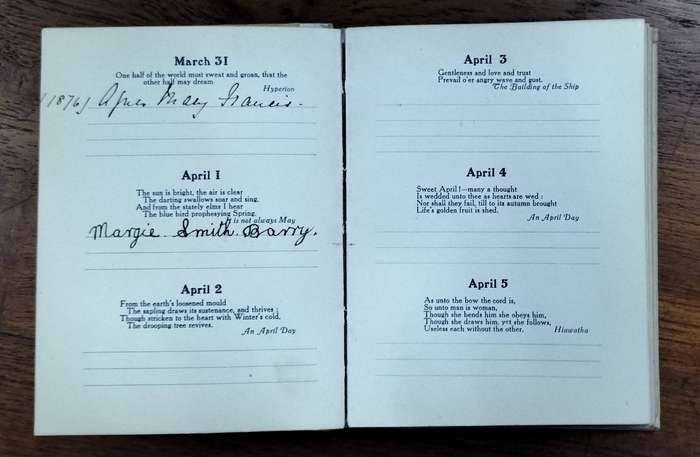 March 31
One half of the world must sweat and groan, that the
other half may dream
Hyperion
(1876) Agnes Mary Francis.
April 1
The sun is bright, the air is clear
The darting swallows soar and sing,
And from the stately elms I hear
The blue bird prophesying Spring.
It is not always May
Margie Smith Barry.
April 2
From the earth's loosened mould
The sapling draws its sustenance, and thrives ;
Though stricken to the heart with Winter's cold,
The drooping tree revives.
An April Day
April 3
Gentleness and love and trust
Prevail o'er angry wave and gust.
The Building of the Ship
April 4
Sweet April !—many a thought
Is wedded unto thee as hearts are wed ;
Nor shall they fail, till to its autumn brought
Life's golden fruit is shed.
An April Day
April 5
As unto the bow the cord is,
So unto man is woman,
Though she bends him she obeys him,
Though she draws him, yet she follows,
Useless each without the other.
Hiawatha